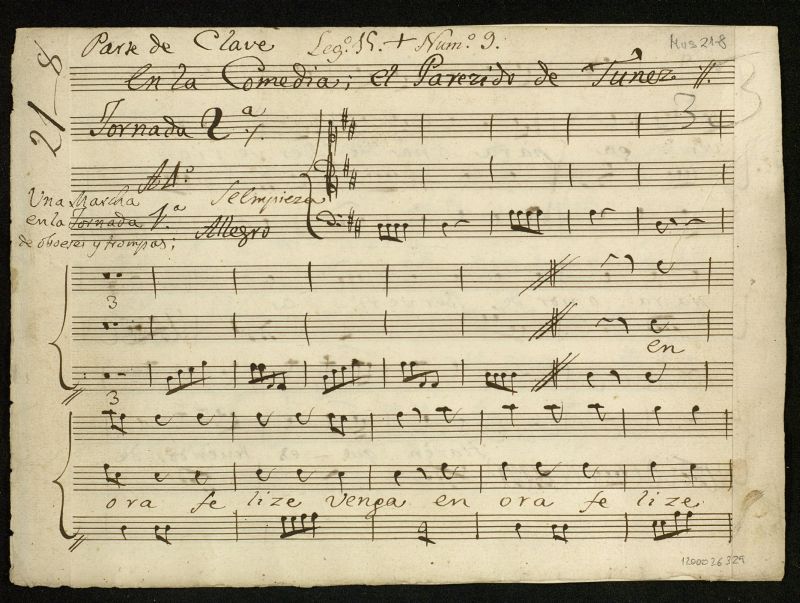 Parte de Clave Leg.º 15. + Num.º 9.
Mus 21-8
21-8
En la Comedia; el Parezido de Tunez
Jornada 2.ª
3
All.º
Una Marcha
en la Jornada 1.ª
de oboeses y trompas;
Se empieza
Allegro
3
3
en
ora fe lize venga en ora fe lize
1200026329